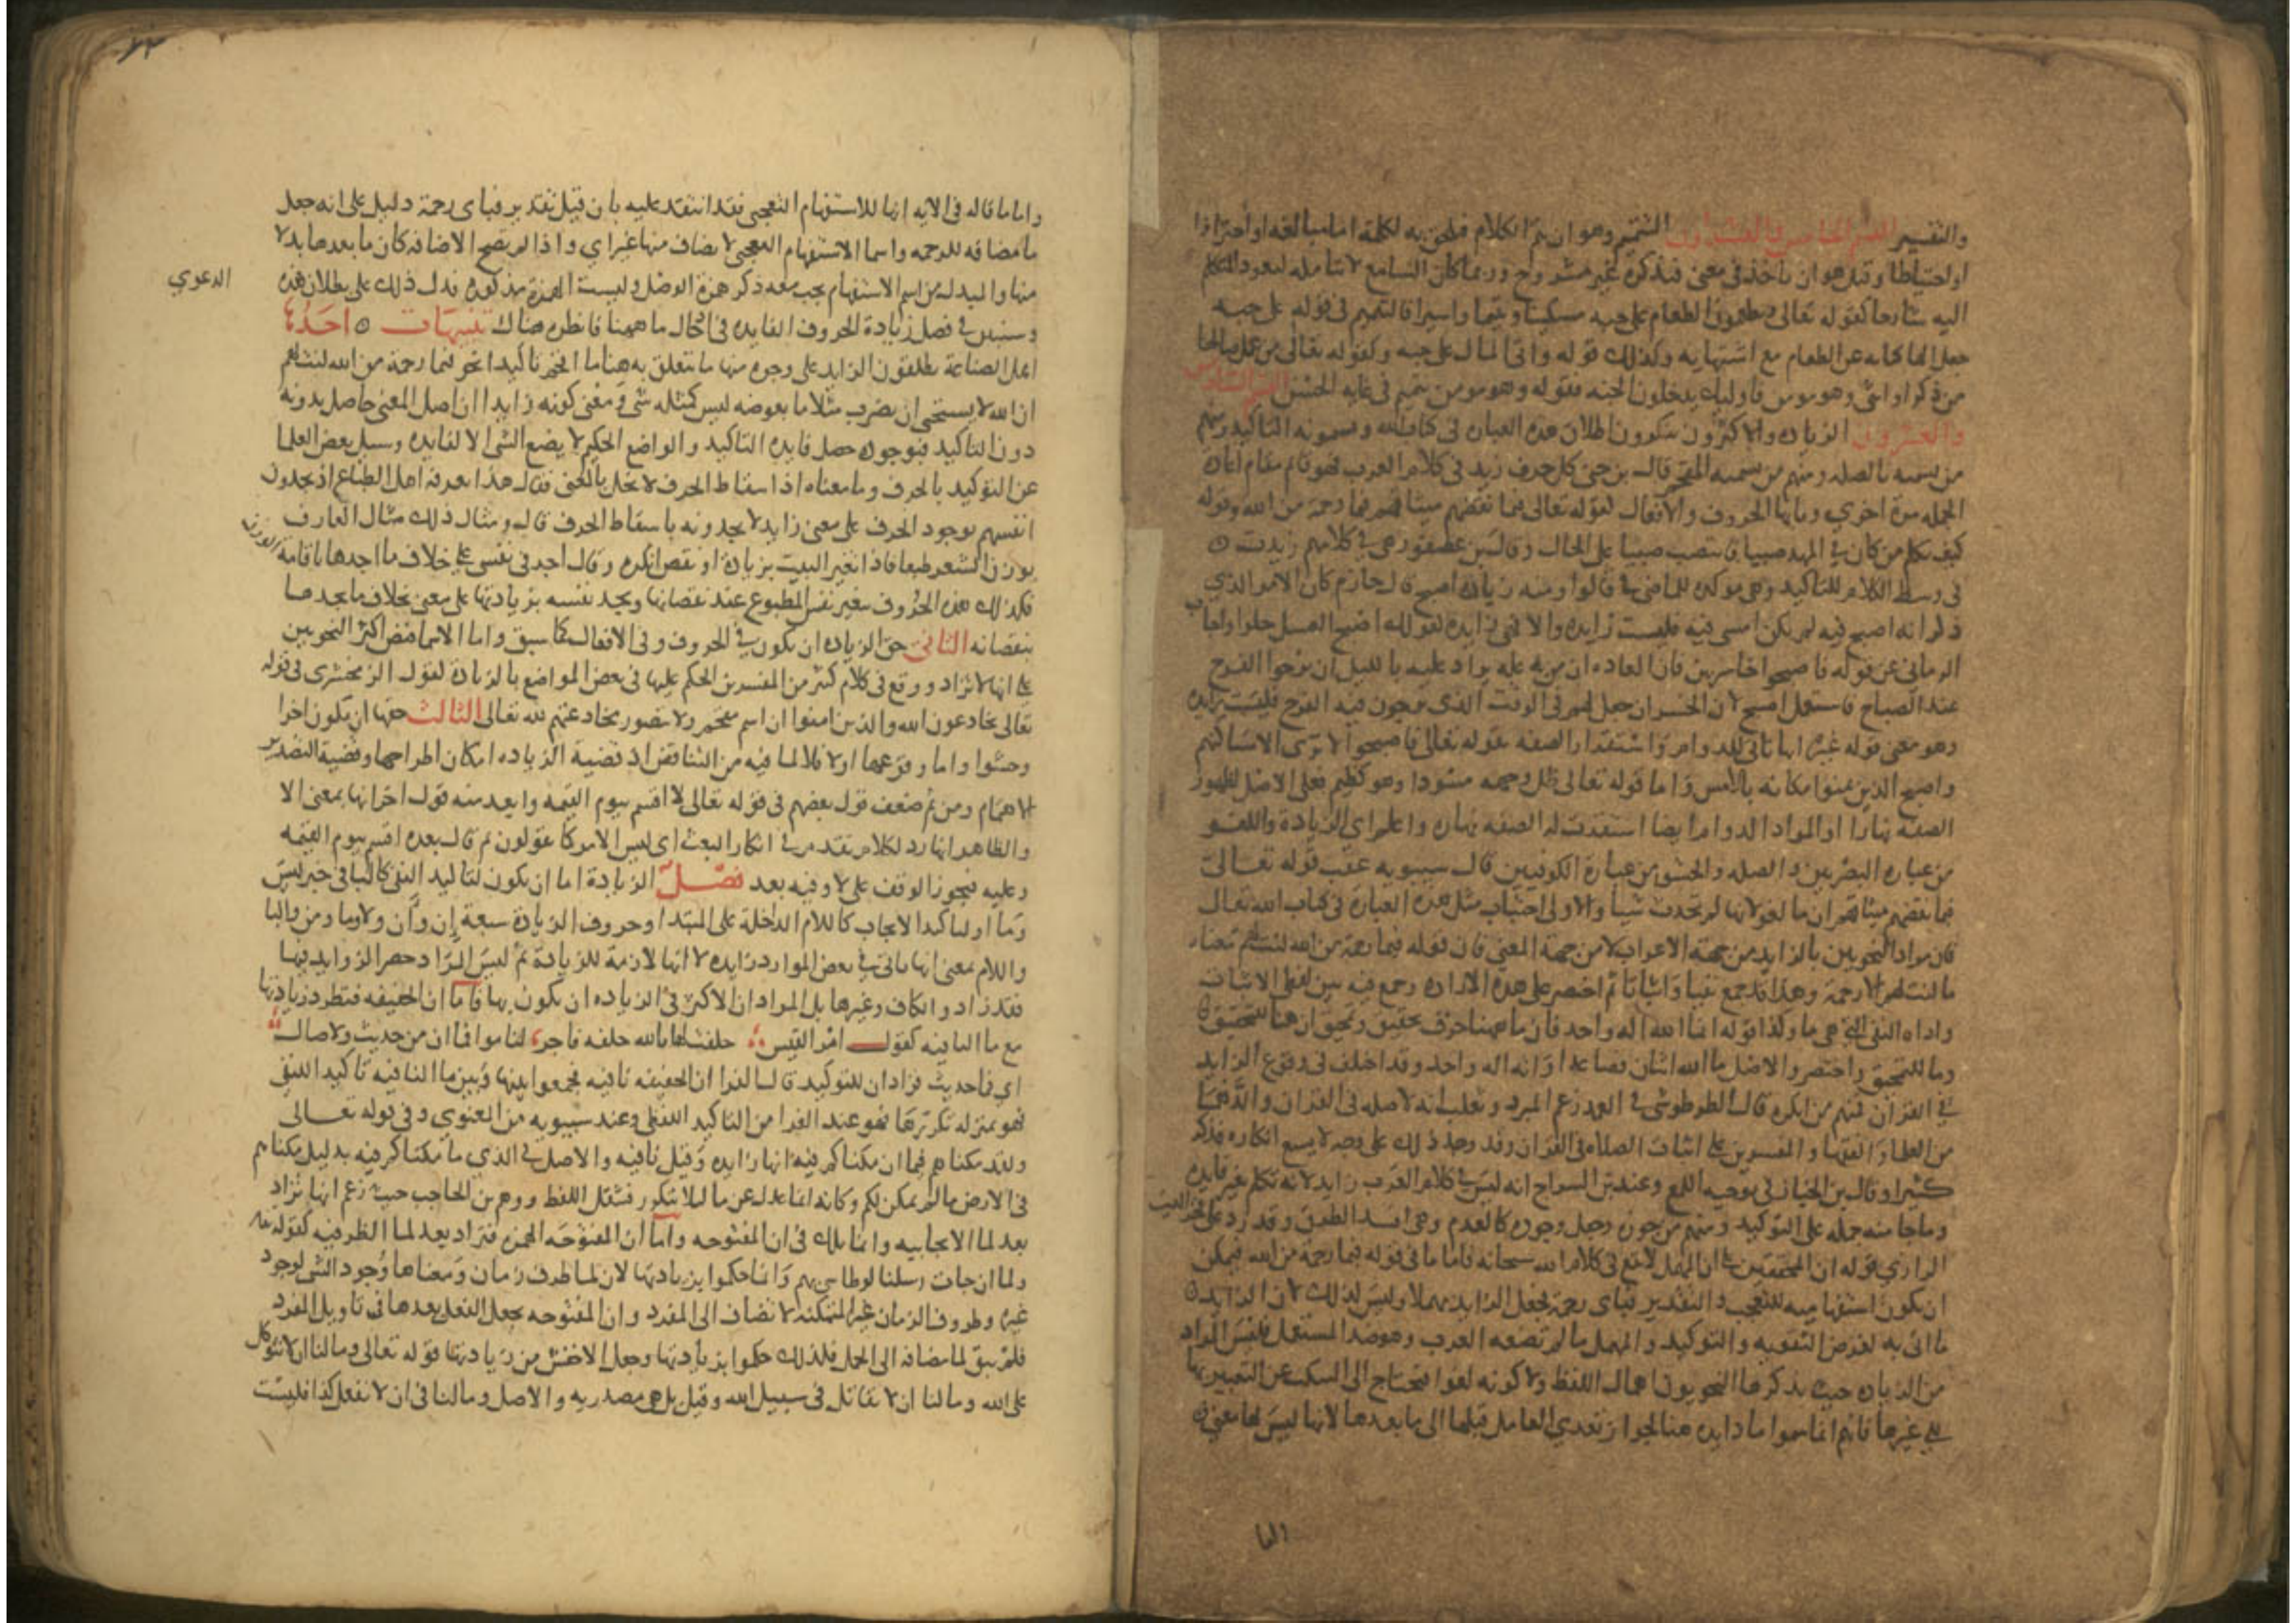 والتفسير القسم الخامس والعشرون التتميم وهو ان يتم الكلام فيلحق به لكلمة اما مبالغه او احترازا
او احتياطا وقيل هو ان ياخذ في معنى فيذكره غير مشروح وربما كان السامع لا يتامله ليعود المتكلم
اليه شارحا كقوله تعالى ويطعمون الطعام على حبه مسكينا ويتيما واسيرا فالتتميم في قوله على حبه
جعل الها كنايه عن الطعام مع اشتهايه وكذلك قوله واتى المال على حبه وكقوله تعالى من عمل صالحا
من ذكر او انثى وهو مومن فاوليك يدخلون الجنه فقوله وهو مومن تتميم في غايه الحسن القسم السادس
والعشرون الزياده والاكثرون ينكرون اطلاق هذه العباره في كتاب الله ويسمونه التاكيد ومنهم
من يسميه بالصله ومنهم من يسميه المقحم قال بن جني كل حرف زيد في كلام العرب فهو قايم مقام اعادة
الجمله مرة اخري وبابها الحروف والافعال لقوله تعالى فبما نقضهم ميثاقهم فبما رحمة من الله وقوله
كيف نكلم من كان في المهد صبيا فانتصب صبيا على الحال وقال بن عصفور هي في كلامهم زيدت
في وسط الكلام للتاكيد وهي موكده للماضي في قالوا ومنه زيادة اصبح قال حازم كان الامر الذي
ذكر انه اصبح فيه لم يكن امسى فيه فليست زايده والا فهي زايده لقولك اصبح العسل حلوا واجاب
الرماني عن قوله فاصبحوا خاسرين فان العاده ان من به عله يزاد عليه بالليل ان يرجوا الفرج
عند الصباح فاستعمل اصبح لان الخسران جعل لهم في الوقت الذي يرجون فيه الفرج فليست زايده
وهو معنى قوله غيره انها تاتي للدوام واستقرار الصفه لقوله تعالى فاصبحوا لا ترى الا مساكنهم
واصبح الذين تمنوا مكانه بالامس واما قوله تعالى ظل وجهه مسودا وهو كظيم فعلى الاصل لظهور
الصفه نهارا او المراد الدوام ايضا استقرت له الصفه نهاره واعلم ان الزيادة واللغو
من عباره البصريين والصله والحشو من عبارة الكوفيين قال سيبويه عقب قوله تعالى
فبما نقضهم ميثاقهم ان ما لغو لانها لم تحدث شيا والاولى اجتناب مثل هذه العبارة في كتاب الله تعالى
فان مراد النحويين بالزايد من جهة الاعراب لا من جهة المعنى فان قوله فبما رحمة من الله لنت لهم معناه
ما لنت لهم الا رحمة وهذا قد جمع نفيا واثباتا ثم اختصر على هذه الاراده وجمع فيه بين لفظي الاثبات
واداه النفي التي هي ما وكذا قوله انما الله اله واحد فان ما ههنا حرف تحقيق وتمحيق ان هنا للتحقيق
وما للتمحيق واختصر والاصل ما الله اثنان فصاعدا وانه اله واحد وقد اختلف في وقوع الزايد
في القرآن فمنهم من انكره قال الطرطوشي في العمد زعم المبرد وثعلب انه لا صله في القران والدهما
من العلما والفقها والمفسرين على اثبات الصلات في القران وقد وجد ذلك على وجه لا يسع انكاره فذكر
كثيرا وقال بن الخباز في توجيه اللمع وعند بن السراج انه ليس في كلام العرب زايد لانه تكلم بغير فايده
وما جا منه حمله على التوكيد ومنهم من جوزه وجعل وجوده كالعدم وهي افسد الطرق وقد رد على فخر الدين
الرازي قوله ان المحققين على ان المهمل لا يقع في كلام الله سبحانه فاما ما في قوله فبما رحمة من الله فيمكن
ان يكون استفهاميه للتعجب والتقدير فباى رحمة فجعل الزايد مهملا وليس كذلك لان الزايد
ما اتى به لغرض التقويه والتوكيد والمهمل ما لم تضعه العرب وهو ضد المستعمل فليس المراد
من الزياده حيث يذكرها النحويون اهمال اللفظ ولا كونه لغوا فيحتاج الى السكت عن التعبير بها
الى غيرها فانهم انما سموا ما زايده هنا لجواز تعدي العامل قبلها الى ما بعدها لانها ليس لها معنى
واما
٢٣
واما ما قاله في الايه انها للاستفهام التعجبى فقد انتقد عليه بان قيل تقدير فباى رحمة دليل على انه جعل
ما مضافه للرحمه واسما الاستفهام التعجبى لا يضاف منها غير اي واذا لم تصح الاضافه كان ما بعدها بدلا
منها والمبدل من اسم الاستفهام يجب معه ذكر همزة الوصل وليست الهمزة مذكوره فدل ذلك على بطلان هذه
الدعوي
وسنبين في فصل زيادة الحروف الفايده في ادخال ما ههنا فانظره هناك تنبيهات احدها
اهل الصناعة يطلقون الزايد على وجوه منها ما يتعلق به هنا ما اقحم تاكيدا نحو فبما رحمة من الله لنت لهم
ان الله لا يستحي ان يضرب مثلا ما بعوضه ليس كمثله شى ومعنى كونه زايدا ان اصل المعنى حاصل بدونه
دون التاكيد فبوجوده حصل فايده التاكيد والواضع الحكيم لا يضع الشى الا لفايده وسيل بعض العلما
عن التوكيد بالحرف وما معناه اذ اسقاط الحرف لا يخل بالمعنى فقال هذا يعرفه اهل الطباع اذ يجدون
انفسهم بوجود الحرف على معنى زايد لا يجدونه باسقاط الحرف قال ومثال ذلك مثال العارف
بوزن الشعر طبعا فاذا تغير البيت بزيادة او نقص انكره وقال اجد في نفسى على خلاف ما اجدها باقامة الوزن
فكذلك هذه الحروف تتغير نفس المطبوع عند نقصانها ويجد نفسه بزيادتها على معنى بخلاف ما يجدها
بنقصانه الثاني حق الزياده ان تكون في الحروف وفي الافعال كما سبق واما الاسما فنص اكثر النحويين
على انها لا تزاد ووقع في كلام كثير من المفسرين الحكم عليها في بعض المواضع بالزيادة لقول الزمخشرى في قوله
تعالى يخادعون الله والذين امنوا ان اسم مقحم ولا يتصور مخادعتهم لله تعالى الثالث حقها ان يكون اخرا
وحشوا واما وقوعها اولا فلا لما فيه من التناقض اذ قضية الزياده امكان اطراحها وقضية التصدير
الاهتمام ومن ثم ضعف قول بعضهم في قوله تعالى لا اقسم بيوم القيمه وابعد منه قول اخر انها بمعنى الا
والظاهر انها رد لكلام تقدم في انكار البعث اى ليس الامر كما تقولون ثم قال بعده اقسم بيوم القيمه
وعليه فيجوز الوقف على لا وفيه بعد فصل الزيادة اما ان يكون لتاكيد النفي كالبا في خبر ليس
وما او لتاكيد الايجاب كاللام الداخلة على المبتدا وحروف الزيادة سبعة إن وأن ولا وما ومن والبا
واللام بمعنى انها تاتي في بعض الموارد زايده لا انها لازمة للزيادة ثم ليس المراد حصر الزوايد فيها
فقد زاد والكاف وغيرها بل المراد ان الاكثر في الزياده ان يكون بها فاما ان الخفيفه فتطرد زيادتها
مع ما النافيه كقول امر القيس حلفت لها بالله حلفه فاجر لناموا فما ان من حديث ولا صال
اي فما حديث فزاد ان للتوكيد قال الفرا ان الخفيفه نافيه فجمعوا بينها وبين ما النافيه تاكيدا للنفي
فهو بمنزله تكررها فهو عند الفرا من التاكيد اللفظى وعند سيبويه من المعنوي وفي قوله تعالى
ولقد مكناهم فيما ان مكناكم فيه انها زايده وقيل نافيه والاصل في الذي ما مكناكم فيه بدليل مكناهم
في الارض ما لم نمكن لكم وكانه انما عدل عن ما ليلا يتكرر فيثقل اللفظ ووهم بن الحاجب حيث زعم انها تزاد
بعد لما الايجابيه وانما تلك في ان المفتوحه واما أن المفتوحه الهمزة فتزاد بعد لما الظرفيه كقوله تعالى
ولما ان جات رسلنا لوطا سي بهم وانما حكموا بزيادتها لان لما ظرف زمان ومعناها وجود الشى لوجود
غيره وظروف الزمان غير المتمكنه لا تضاف الى المفرد وان المفتوحه تجعل الفعل بعدها في تاويل المفرد
فلم تبق لما مضافه الى الجمل فلذلك حكموا بزيادتها وجعل الاخفش من زيادتها قوله تعالى وما لنا ان لا نتوكل
على الله وما لنا ان لا نقاتل في سبيل الله وقيل بل هي مصدريه والاصل وما لنا في ان لا نفعل كذا فليست